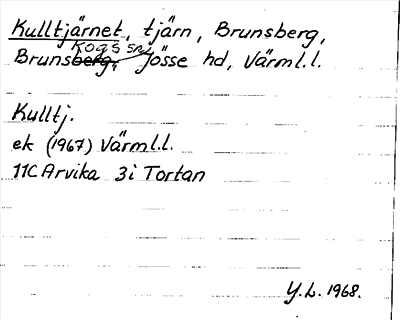 Kulltjärnet, tjärn, Brunsberg,
Brunskogs sn, Jösse hd, Värml.l.
Kulltj.
ek (1967) Värml.l.
11C Arvika 3i Tortan
Y.L. 1968.